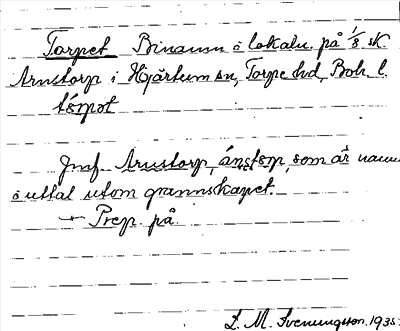 Torpet Binamn o lokaln. på 1/8 sk
Arnstorp i Hjärtum sn, Torpe hd, Boh. l.
tǻrpət
Jmf. Arnstorp, ánstərp, som är namn
o uttal utom grannskapet.
— Prep. på.
L. M. Svenungsson. 1935.